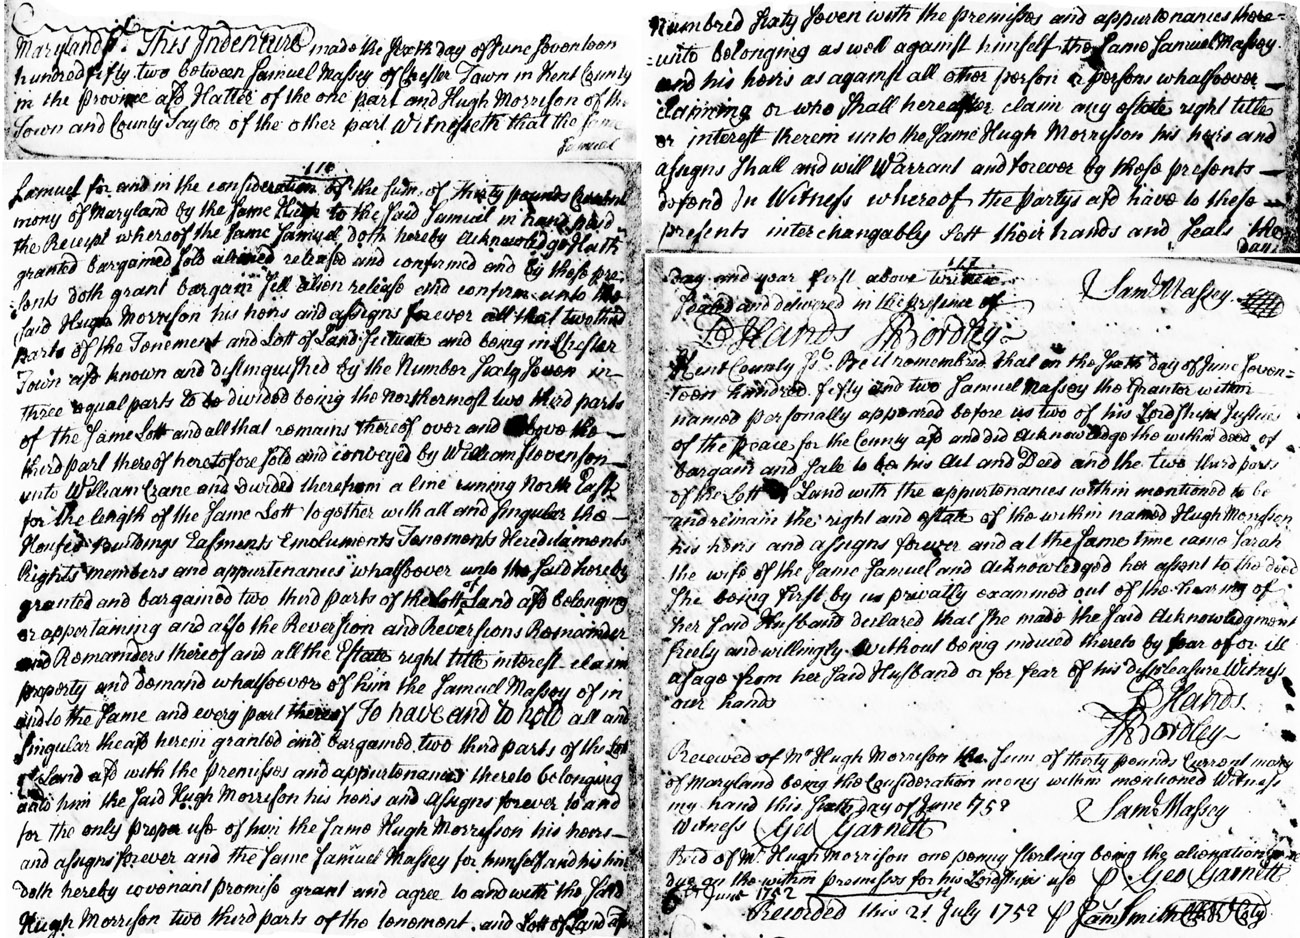 Maryland ss. This Indenture made the Sixth day of June Seventeen
hundred fifty two between Samuel Massey of Chester Town in Kent County
in the province afsd Hatter of the one part and Hugh Morrison of the
Town and County Taylor of the other part Witnesseth that the same
Samuel
116
Samuel for and in the consideration of the sum of thirty pounds Current
mony of Maryland by the same Hugh to the said Samuel in hand paid
the Receipt whereof the same Samuel doth hereby Acknowledge Hath
granted bargained sold aliened released and confirmed and by these pre-
sents doth grant bargain sell alien release and confirm unto the
said Hugh Morrison his heirs and assigns forever all that two third
parts of the Tenement and Lott of Land Scituate and being in Chester
Town afsd known and distinguished by the Number Sixty Seven in
three equal parts to be divided being the northermost two third parts
of the same Lott and all that remains thereof over and above the
third part thereof heretofore sold and conveyed by William Stevenson
unto William Crane and divided therefrom a line runing North East
for the length of the same Lott together with all and singular the
Houses Buildings Easments Emoluments Tenements Hereditaments
Rights members and appurtenances whatsoever unto the said hereby
granted and bargained two third parts of the Lott of Land afsd belonging
or appertaining and also the Reversion and Reversions Remainder
and Remainders thereof and all the Estate right title interest claim
property and demand whatsoever of him the Samuel Massey of in
and to the same and every part thereof To have and to hold all and
singular the afsd herein granted and bargained two third parts of the Lott
of Land afsd with the premisses and appurtenances thereto belonging
unto him the said Hugh Morrison his heirs and assigns forever to and
for the only proper use of him the same Hugh Morrisson his heirs
and assigns forever and the same Samuel Massey for himself and his heirs
doth hereby covenant promise grant and agree to and with the said
Hugh Morrison two third parts of the tenement and Lott of Land afsd
Numbred Sixty Seven with the premisses and appurtenances there-
unto belonging as well against himself the same Samuel Massey
and his heirs as against all other person or persons whatsoever
claiming or who shall hereafter claim any estate right title
or interest therein unto the same Hugh Morrisson his heirs and
assigns shall and will Warrant and forever by these presents
defend In Witness whereof the partys afsd have to these
presents interchangably sett their hands and seals the
day
117
day and year first above written
Sealed and delivered in the presence of
Saml Massey
B Hands JBordley
Kent County Ss. Be it remembred that on the Sixth day of June Seven-
teen hundred fifty and two Samuel Massey the Grantor within
named personally appeared before us two of his Lordships Justices
of the peace for the County afsd and did Acknowledge the within deed of
bargain and sale to be his Act and Deed and the two third parts
of the Lott of Land with the appurtenances within mentioned to be
and remain the right and estate of the within named Hugh Morrisson
his heirs and assigns forever and at the same time came Sarah
the wife of the same Samuel and Acknowledged her assent to the deed
She being first by us privatly examined out of the hearing of
her said Husband declared that she made the said Acknowledgment
freely and willingly without being induced thereto by fear of or ill
usage from her said Husband or for fear of his displeasure Witness
our hands
B Hands
JBordley
Received of Mr Hugh Morrison the sum of thirty pounds Current mony
of Maryland being the Consideration mony within mentioned Witness
my hand this Sixth day of June 1752
Saml Massey
Witness Geo Garnett
Recd of Mr Hugh Morrison one penny Sterling being the alienation fine
due on the within premisses for his Lordships use p Geo Garnett
6th June 1752
Recorded this 21st July 1752 p Jam Smith Clk K Cty